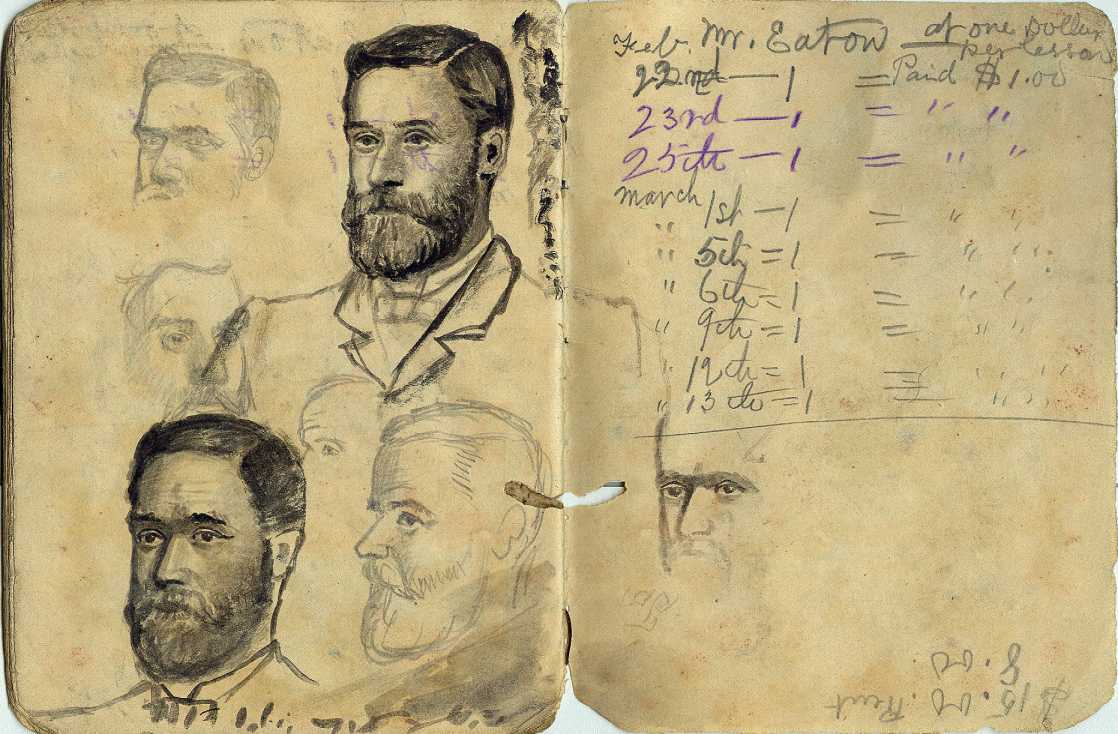 Feb. Mr. Eaton at one Dollar
per lesson
22nd — 1 = Paid $1.00
23rd — 1 = " "
25th — 1 = " "
March 1st — 1 = " "
" 5th = 1 = " "
" 6th = 1 = " "
" 9th = 1 = " "
12th = 1 = " "
" 13th = 1 = " "
$15.00 Rent
8.00